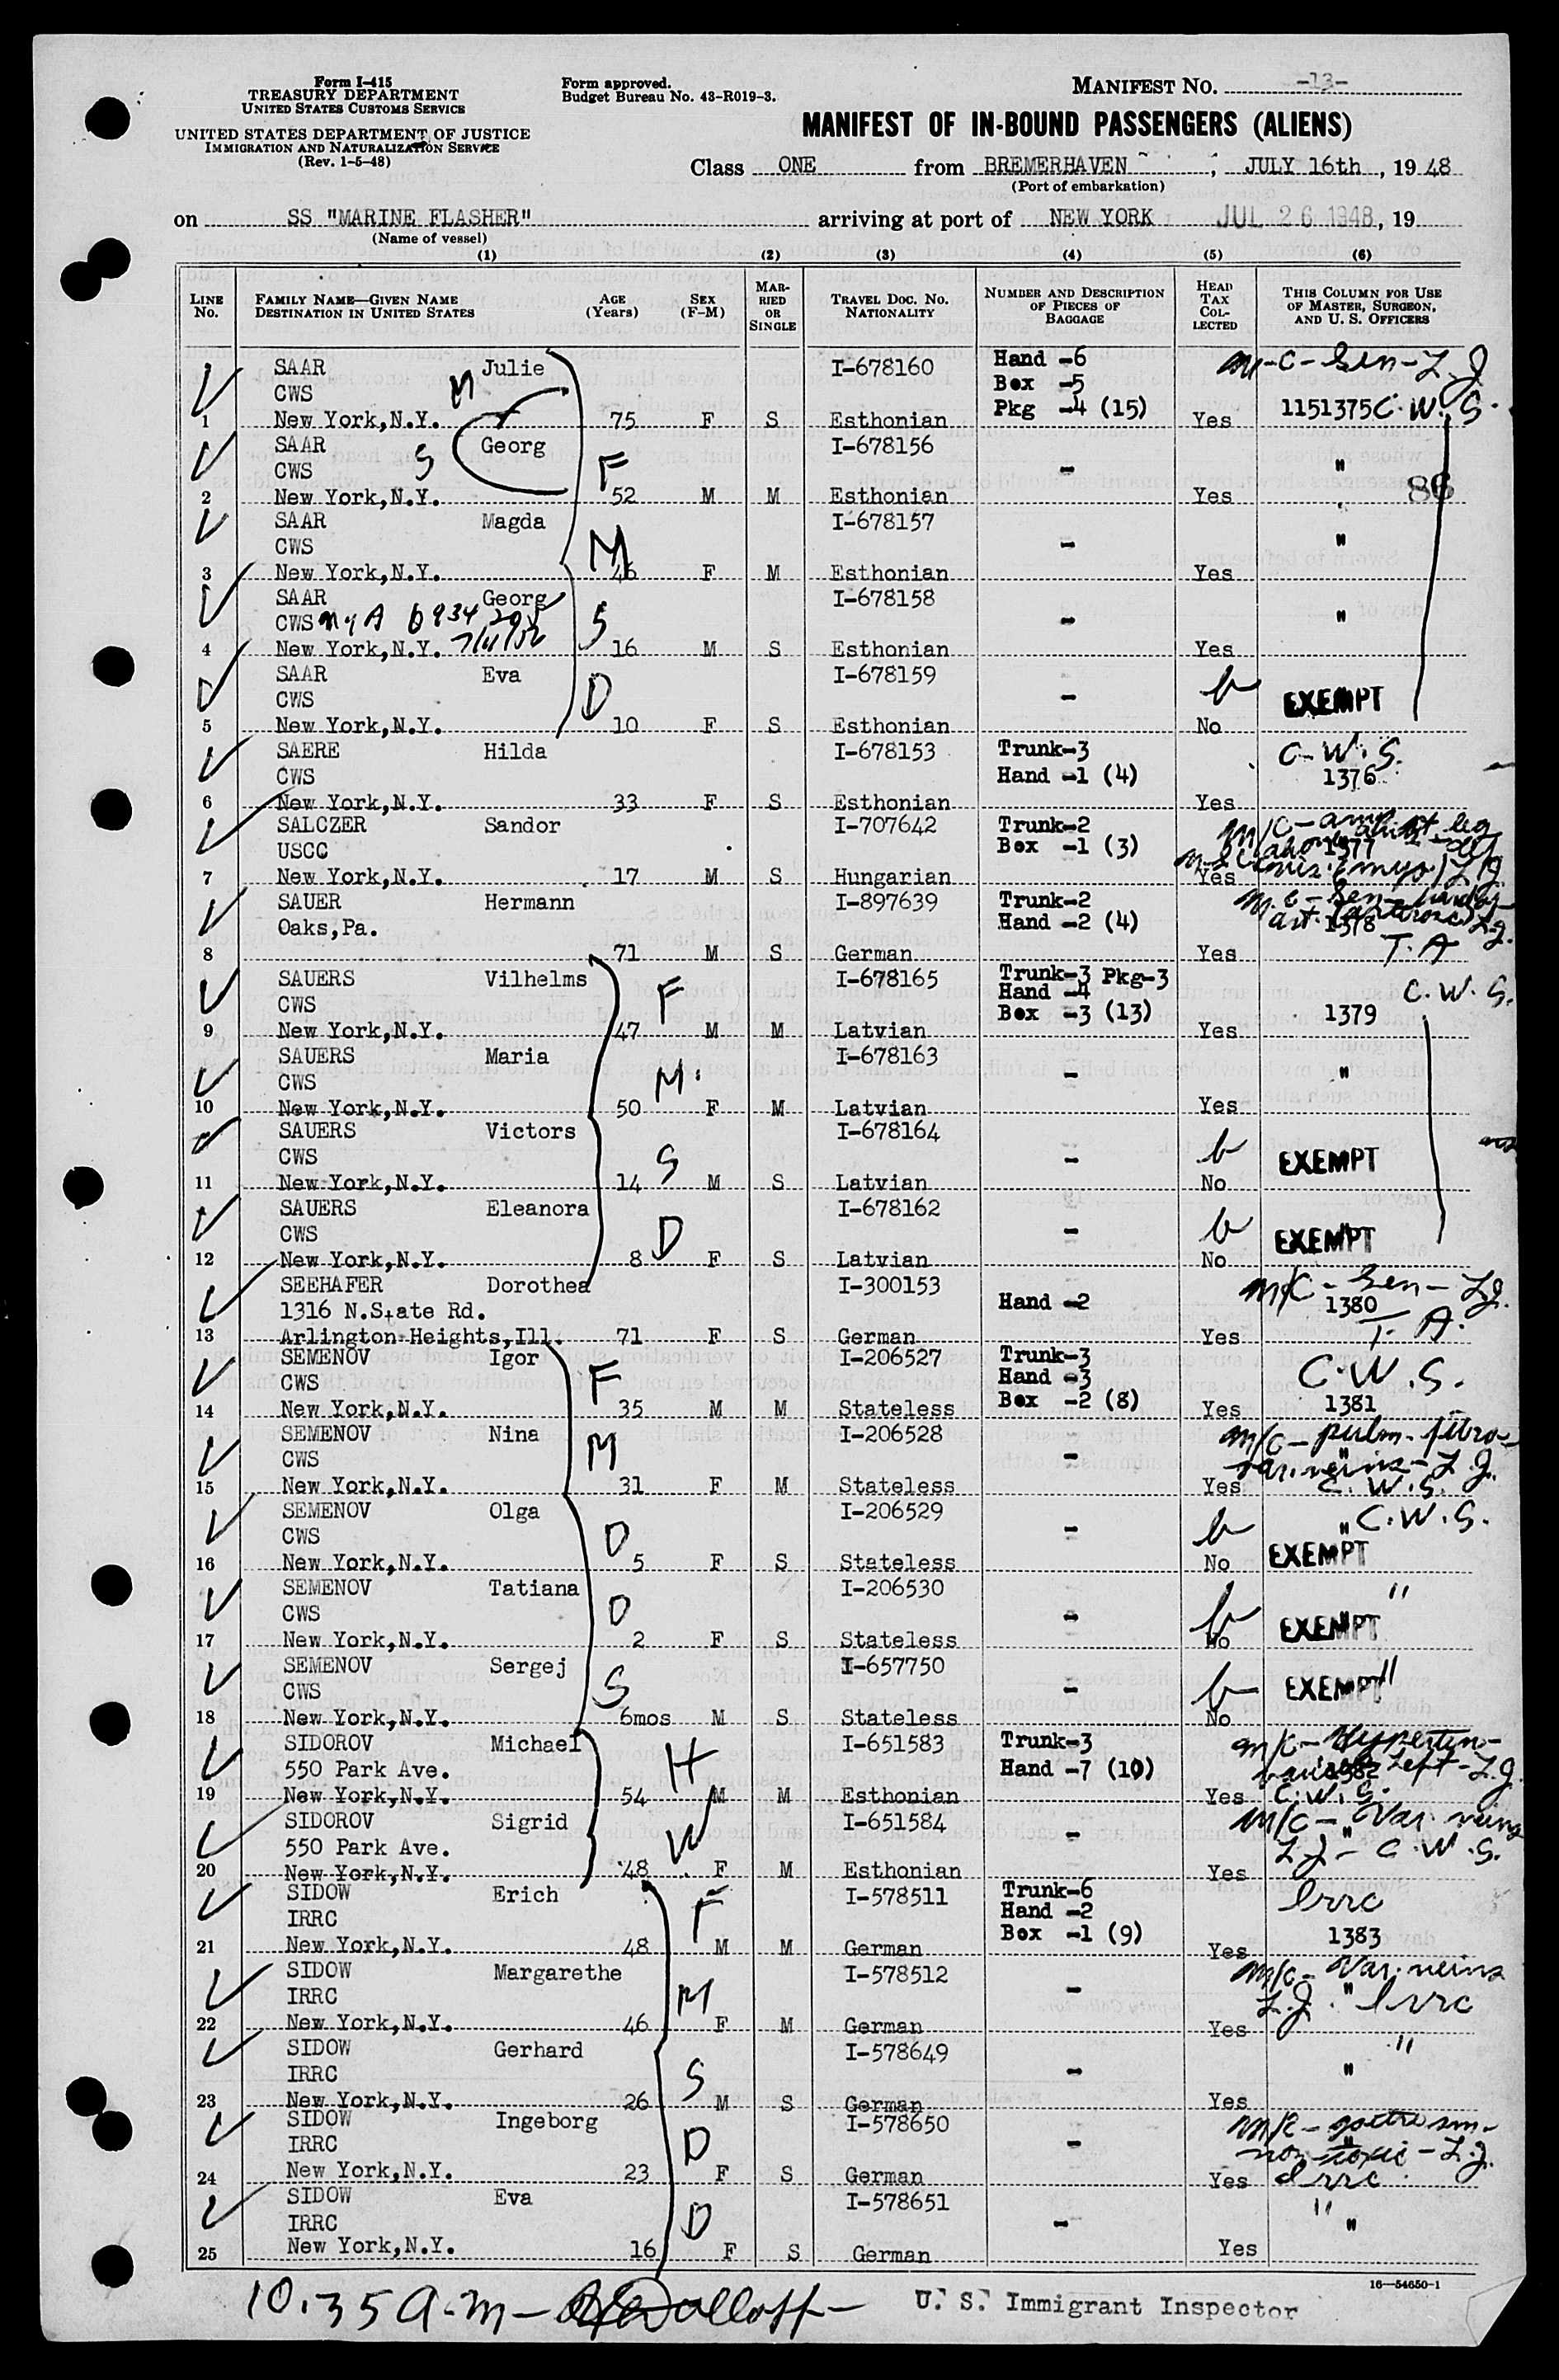 Form I-415
TREASURY DEPARTMENT
UNITED STATES CUSTOMS SERVICE
UNITED STATES DEPARTMENT OF JUSTICE
IMMIGRATION AND NATURALIZATION SERVICE
(Rev. 1-5-48)
Form approved.
Budget Bureau No. 43-R019-3.
MANIFEST NO. -13-
MANIFEST OF IN-BOUND PASSENGERS (ALIENS)
Class ONE from BREMERHAVEN, JULY 16th, 19 48
(Port of embarkation)
on SS "MARINE FLASHER" arriving at port of NEW YORK JUL 26 1948, 19
(Name of vessel)
(1) (2) (3) (4) (5) (6)
LINE No. FAMILY NAME—GIVEN NAME DESTINATION IN UNITED STATES AGE (Years) SEX (F-M) MARRIED OR SINGLE TRAVEL DOC. NO. NATIONALITY NUMBER AND DESCRIPTION OF PIECES OF BAGGAGE HEAD TAX COLLECTED THIS COLUMN FOR USE OF MASTER, SURGEON, AND U. S. OFFICERS
SAAR Julie I-678160 Hand -6 M-C-Sen-L.J.
CWS M Box -5
1 New York,N.Y. 75 F S Esthonian Pkg -4 (15) Yes 1151375 C.W.S.
SAAR Georg I-678156
CWS S F - "
2 New York,N.Y. 52 M M Esthonian Yes 86
SAAR Magda I-678157
CWS M - "
3 New York,N.Y. 46 F M Esthonian Yes
SAAR Georg I-678158
CWS S - "
4 New York,N.Y. 16 M S Esthonian Yes
SAAR Eva I-678159
CWS D - b EXEMPT
5 New York,N.Y. 10 F S Esthonian No
SAERE Hilda I-678153 Trunk-3 C.W.S.
CWS Hand -1 (4) 1376
6 New York,N.Y. 33 F S Esthonian Yes
SALCZER Sandor I-707642 Trunk-2 M/C-amp leg
USCC Box -1 (3) 1377
7 New York,N.Y. 17 M S Hungarian Yes
SAUER Hermann I-897639 Trunk-2
Oaks,Pa. Hand -2 (4) 1378
8 71 M S German Yes T.A
SAUERS Vilhelms I-678165 Trunk-3 Pkg-3
CWS F Hand -4 C.W.S.
9 New York,N.Y. 47 M M Latvian Box -3 (13) Yes 1379
SAUERS Maria I-678163
CWS M - "
10 New York,N.Y. 50 F M Latvian Yes
SAUERS Victors I-678164
CWS S - b EXEMPT
11 New York,N.Y. 14 M S Latvian No
SAUERS Eleanora I-678162
CWS D - b EXEMPT
12 New York,N.Y. 8 F S Latvian No
SEEHAFER Dorothea I-300153 M/C-Sen-L.J.
1316 N.State Rd. Hand -2 1380
13 Arlington Heights,Ill. 71 F S German Yes T.A.
SEMENOV Igor I-206527 Trunk-3
CWS F Hand -3 C.W.S.
14 New York,N.Y. 35 M M Stateless Box -2 (8) Yes 1381
SEMENOV Nina I-206528 M/C-pulm-fibro-
CWS M - " var.veins-L.J.
15 New York,N.Y. 31 F M Stateless Yes C.W.S.
SEMENOV Olga I-206529
CWS D - b " C.W.S.
16 New York,N.Y. 5 F S Stateless No EXEMPT
SEMENOV Tatiana I-206530 "
CWS D - b EXEMPT
17 New York,N.Y. 2 F S Stateless No
SEMENOV Sergej I-657750
CWS S - b EXEMPT "
18 New York,N.Y. 6mos M S Stateless No
SIDOROV Michael I-651583 Trunk-3 M/C-Hyperten-
550 Park Ave. H Hand -7 (10) 1382 Left-L.J.
19 New York,N.Y. 54 M M Esthonian Yes C.W.S.
SIDOROV Sigrid I-651584 M/C-Var.veins
550 Park Ave. W - " L.J-C.W.S.
20 New York,N.Y. 48 F M Esthonian Yes
SIDOW Erich I-578511 Trunk-6 Irrc
IRRC F Hand -2
21 New York,N.Y. 48 M M German Box -1 (9) Yes 1383
SIDOW Margarethe I-578512 M/C-Var.veins
IRRC M - L.J. " Irrc
22 New York,N.Y. 46 F M German Yes
SIDOW Gerhard I-578649 "
IRRC S - "
23 New York,N.Y. 26 M S German Yes
SIDOW Ingeborg I-578650 M/C-goitre sm-
IRRC D - " non-toxic-L.J.
24 New York,N.Y. 23 F S German Yes Irrc
SIDOW Eva I-578651 "
IRRC D - "
25 New York,N.Y. 16 F S German Yes
16—54650-1
10.35 a.m- U. S. Immigrant Inspector